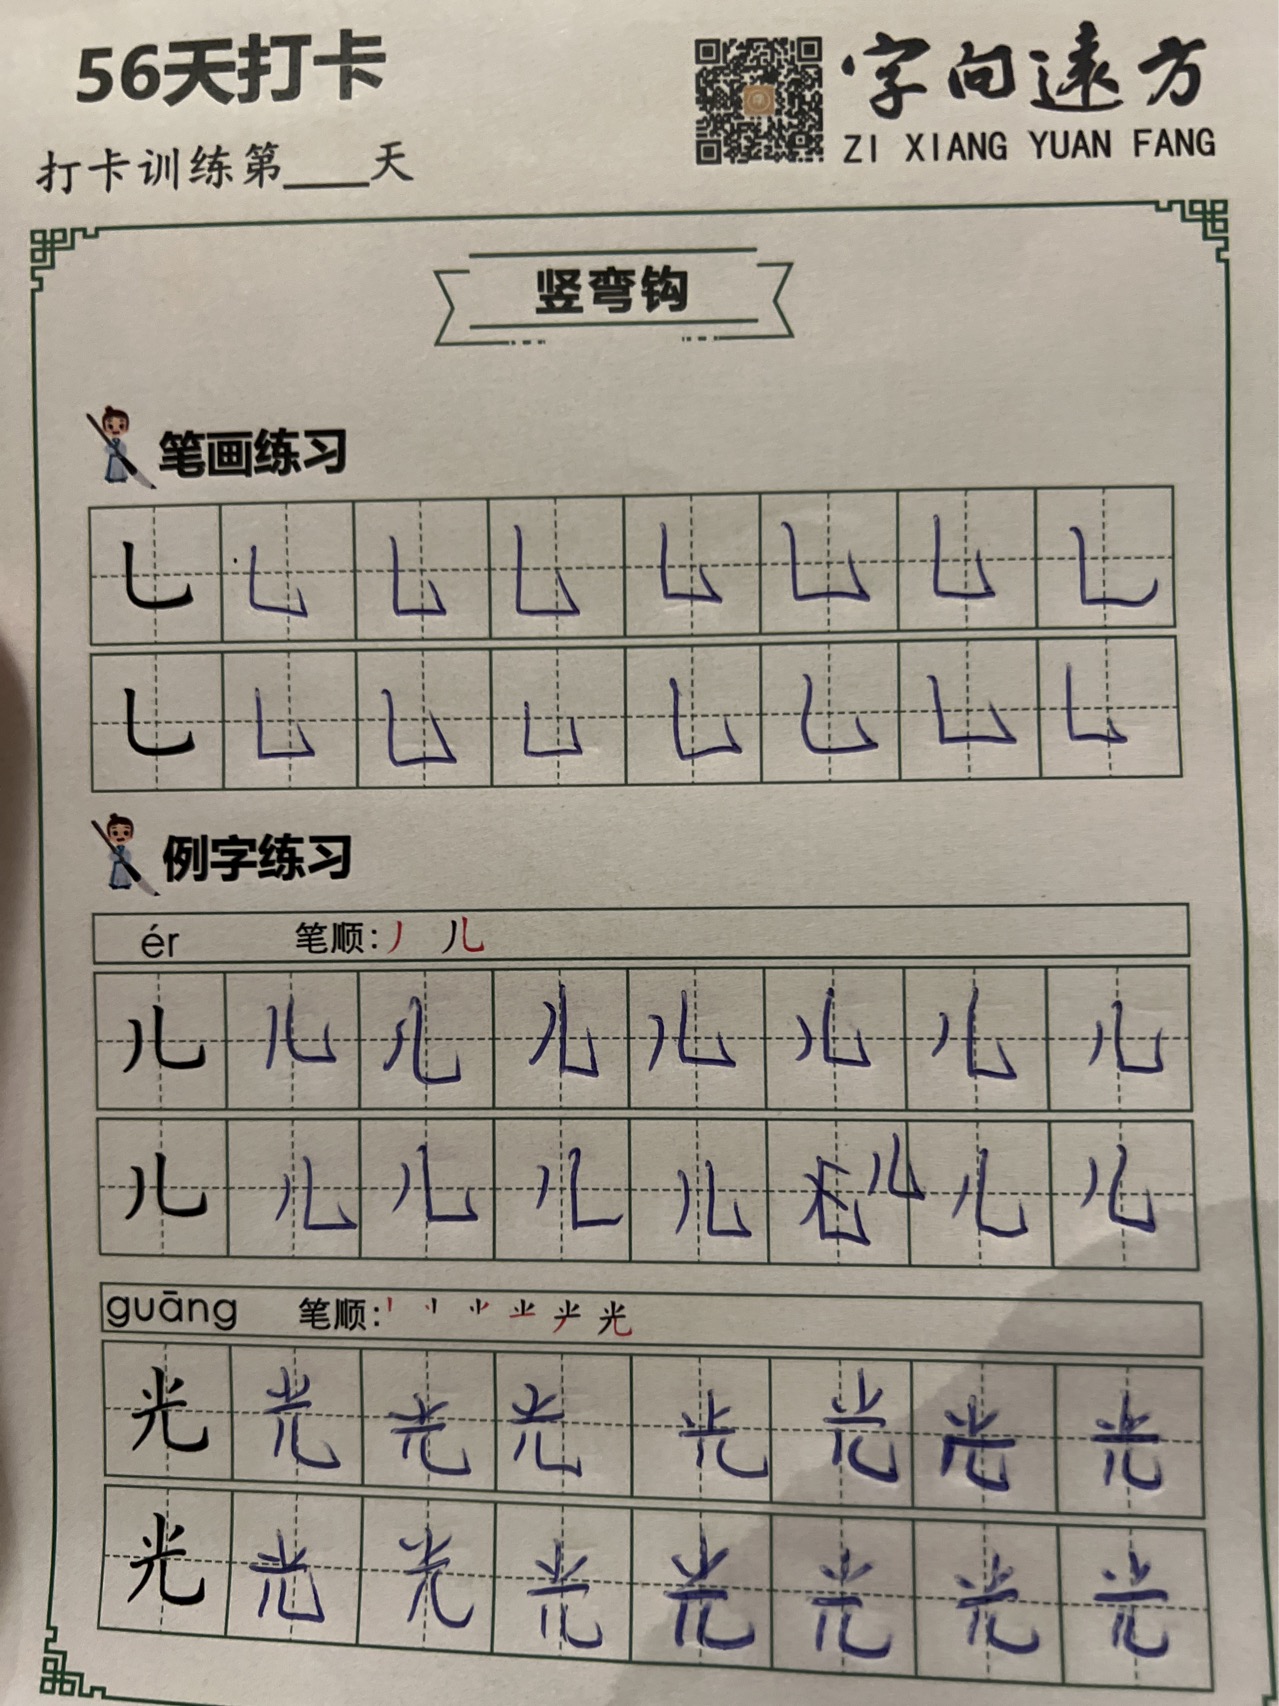 56天打卡
字向远方
ZI XIANG YUAN FANG
打卡训练第____天
竖弯钩
笔画练习
乚 乚 乚 乚 乚 乚 乚 乚
乚 乚 乚 乚 乚 乚 乚 乚
例字练习
ér 笔顺: 丿 儿
儿 儿 儿 儿 儿 儿 儿 儿
儿 儿 儿 儿 儿 儿 儿 儿
guāng 笔顺: 光
光 光 光 光 光 光 光 光
光 光 光 光 光 光 光 光